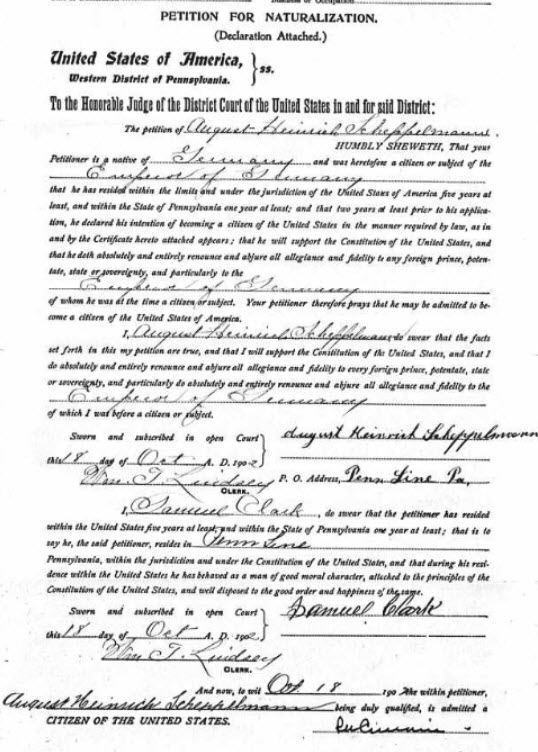 PETITION FOR NATURALIZATION.
(Declaration Attached.)
United States of America,
Western District of Pennsylvania. } ss.
To the Honorable Judge of the District Court of the United States in and for said District:
The petition of August Heinrich Scheppelmann
HUMBLY SHEWETH, That your
Petitioner is a native of Germany and was heretofore a citizen or subject of the
Emperor of Germany
that he has resided within the limits and under the jurisdiction of the United States of America five years at
least, and within the State of Pennsylvania one year at least; and that two years at least prior to his applica-
tion, he declared his intention of becoming a citizen of the United States in the manner required by law, as in
and by the Certificate hereto attached appears; that he will support the Constitution of the United States, and
that he doth absolutely and entirely renounce and abjure all allegiance and fidelity to any foreign prince, poten-
tate, state or sovereignty, and particularly to the
Emperor of Germany
of whom he was at the time a citizen or subject. Your petitioner therefore prays that he may be admitted to be-
come a citizen of the United States of America.
I, August Heinrich Scheppelmann do swear that the facts
set forth in this my petition are true, and that I will support the Constitution of the United States, and that I
do absolutely and entirely renounce and abjure all allegiance and fidelity to every forign prince, potentate, state
or sovereignty, and particularly do absolutely and entirely renounce and abjure all allegiance and fidelity to the
Emperor of Germany
of which I was before a citizen or subject.
Sworn and subscribed in open Court } August Heinrich Scheppelmann
this 18 day of Oct A. D. 1902
Wm. T. Lindsey P. O. Address, Penn Line Pa,
CLERK.
I, Samuel Clark, do swear that the petitioner has resided
within the United States five years at least, and within the State of Pennsylvania one year at least; that is to
say he, the said petitioner, resides in Penn Line
Pennsylvania, within the jurisdiction and under the Constitution of the United States, and that during his resi-
dence within the United States he has behaved as a man of good moral character, attached to the principles of the
Constitution of the United States, and well disposed to the good order and happiness of the same.
Sworn and subscribed in open Court } Samuel Clark
this 18 day of Oct A. D. 1902
Wm. T. Lindsey
CLERK.
And now, to wit Oct 18 1902 the within petitioner,
August Heinrich Scheppelmann being duly qualified, is admitted a
CITIZEN OF THE UNITED STATES.